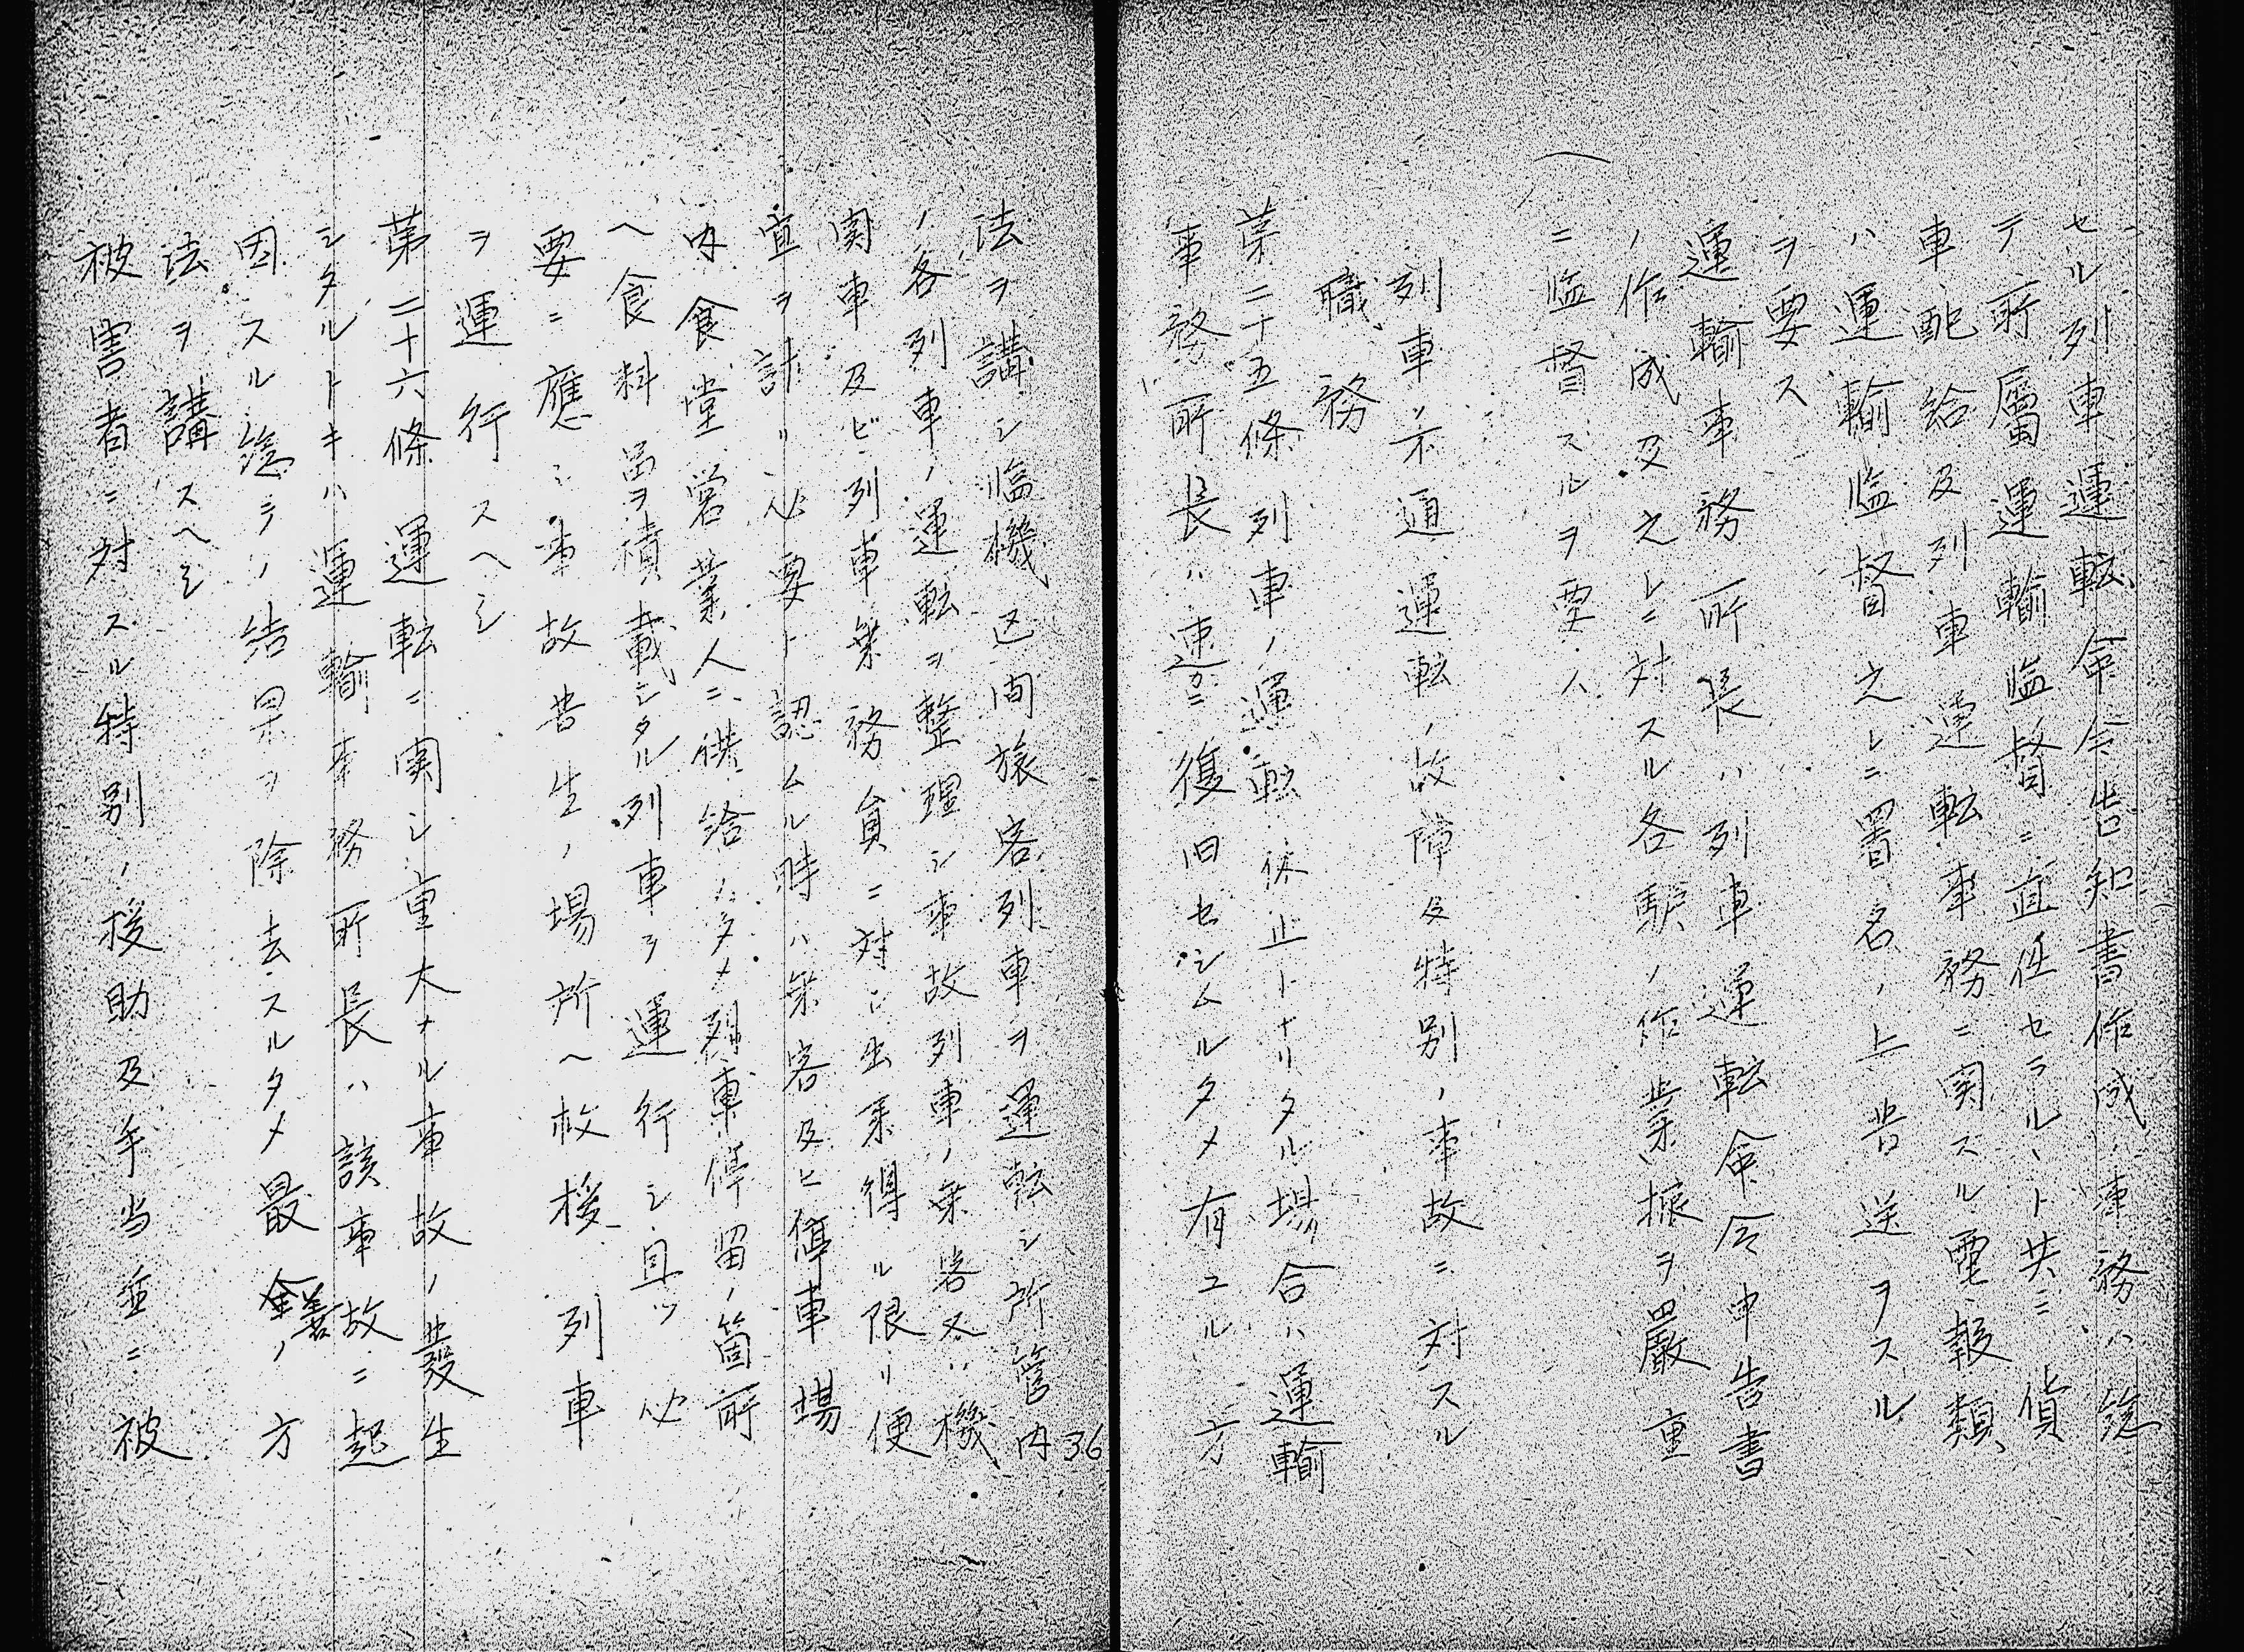 セル列車運転命令告知書作成ノ事務ハ総
テ所属運輸監督ニ直任セラルヽト共ニ貨
車配給及列車運転事務ニ関スル電報類
ハ運輸監督之レニ署名ノ上告送ヲスル
ヲ要ス
運輸事務所長ハ列車運転命令申告書
ノ作成及之レニ対スル各駅ノ作業振ヲ厳重
ニ監督スルヲ要ス
列車不通運転ノ故障及特別ノ事故ニ対スル
職務
第二十五條列車ノ運転休止トナリタル場合ハ運輸
事務所長ハ速カニ復旧セシムルタメ有ユル方
法ヲ講シ臨機区間旅客列車ヲ運転シ所管内
ノ各列車ノ運転ヲ整理シ事故列車ノ乗客又ハ機
関車及ビ列車乗務員ニ対シ出来得ル限リ便
宜ヲ計リ必要ト認ムル時ハ乗客及ヒ停車場
内食堂営業人ニ供給ノタメ列車停留ノ箇所
ヘ食料品ヲ積載シタル列車ヲ運行シ且ツ必
要ニ應シ事故昔生ノ場所ヘ救援列車
ヲ運行スヘシ
第二十六條運転ニ関シ重大ナル事故ノ發生
シタルトキハ運輸事務所長ハ該事故ニ起
因スル総ラノ結果ヲ除去スルタメ最善ノ方
法ヲ講スヘシ
被害者ニ対スル特別ノ援助及手当並ニ被
36